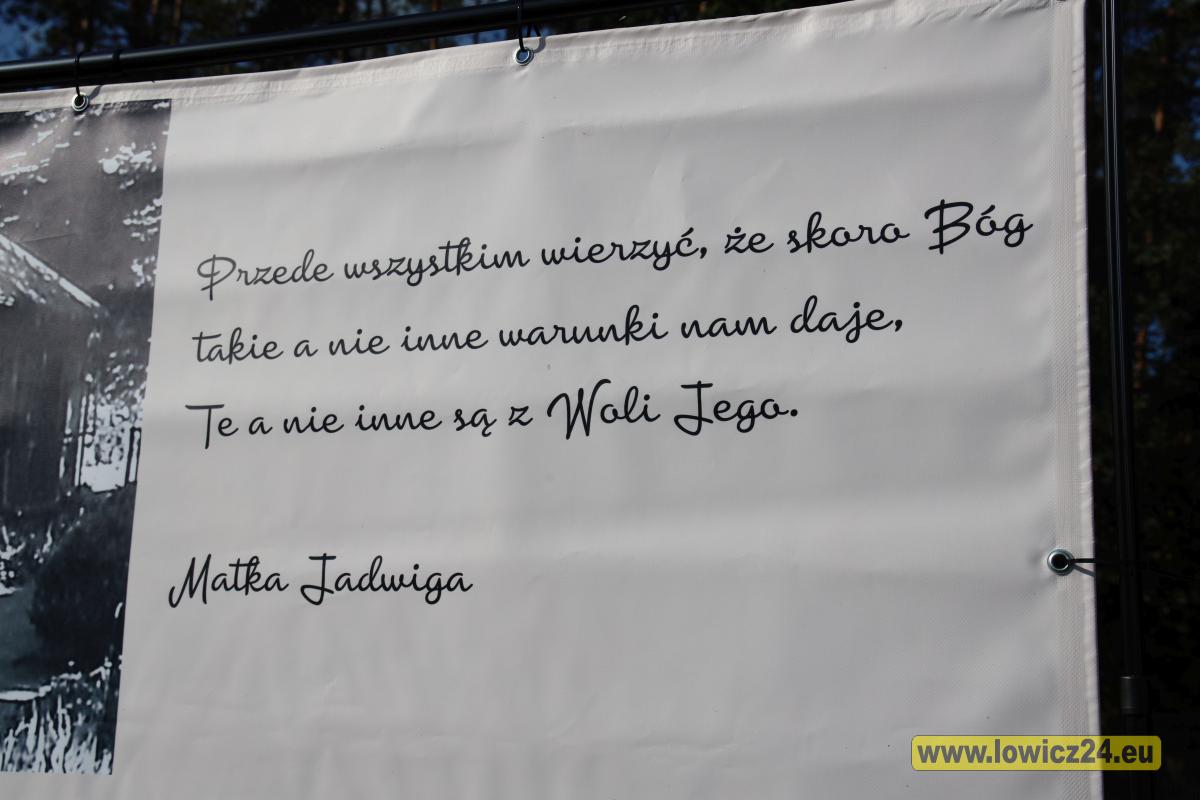 Przede wszystkim wierzyć, że skoro Bóg
takie a nie inne warunki nam daje,
Te a nie inne są z Woli Jego.
Matka Jadwiga
www.lowicz24.eu